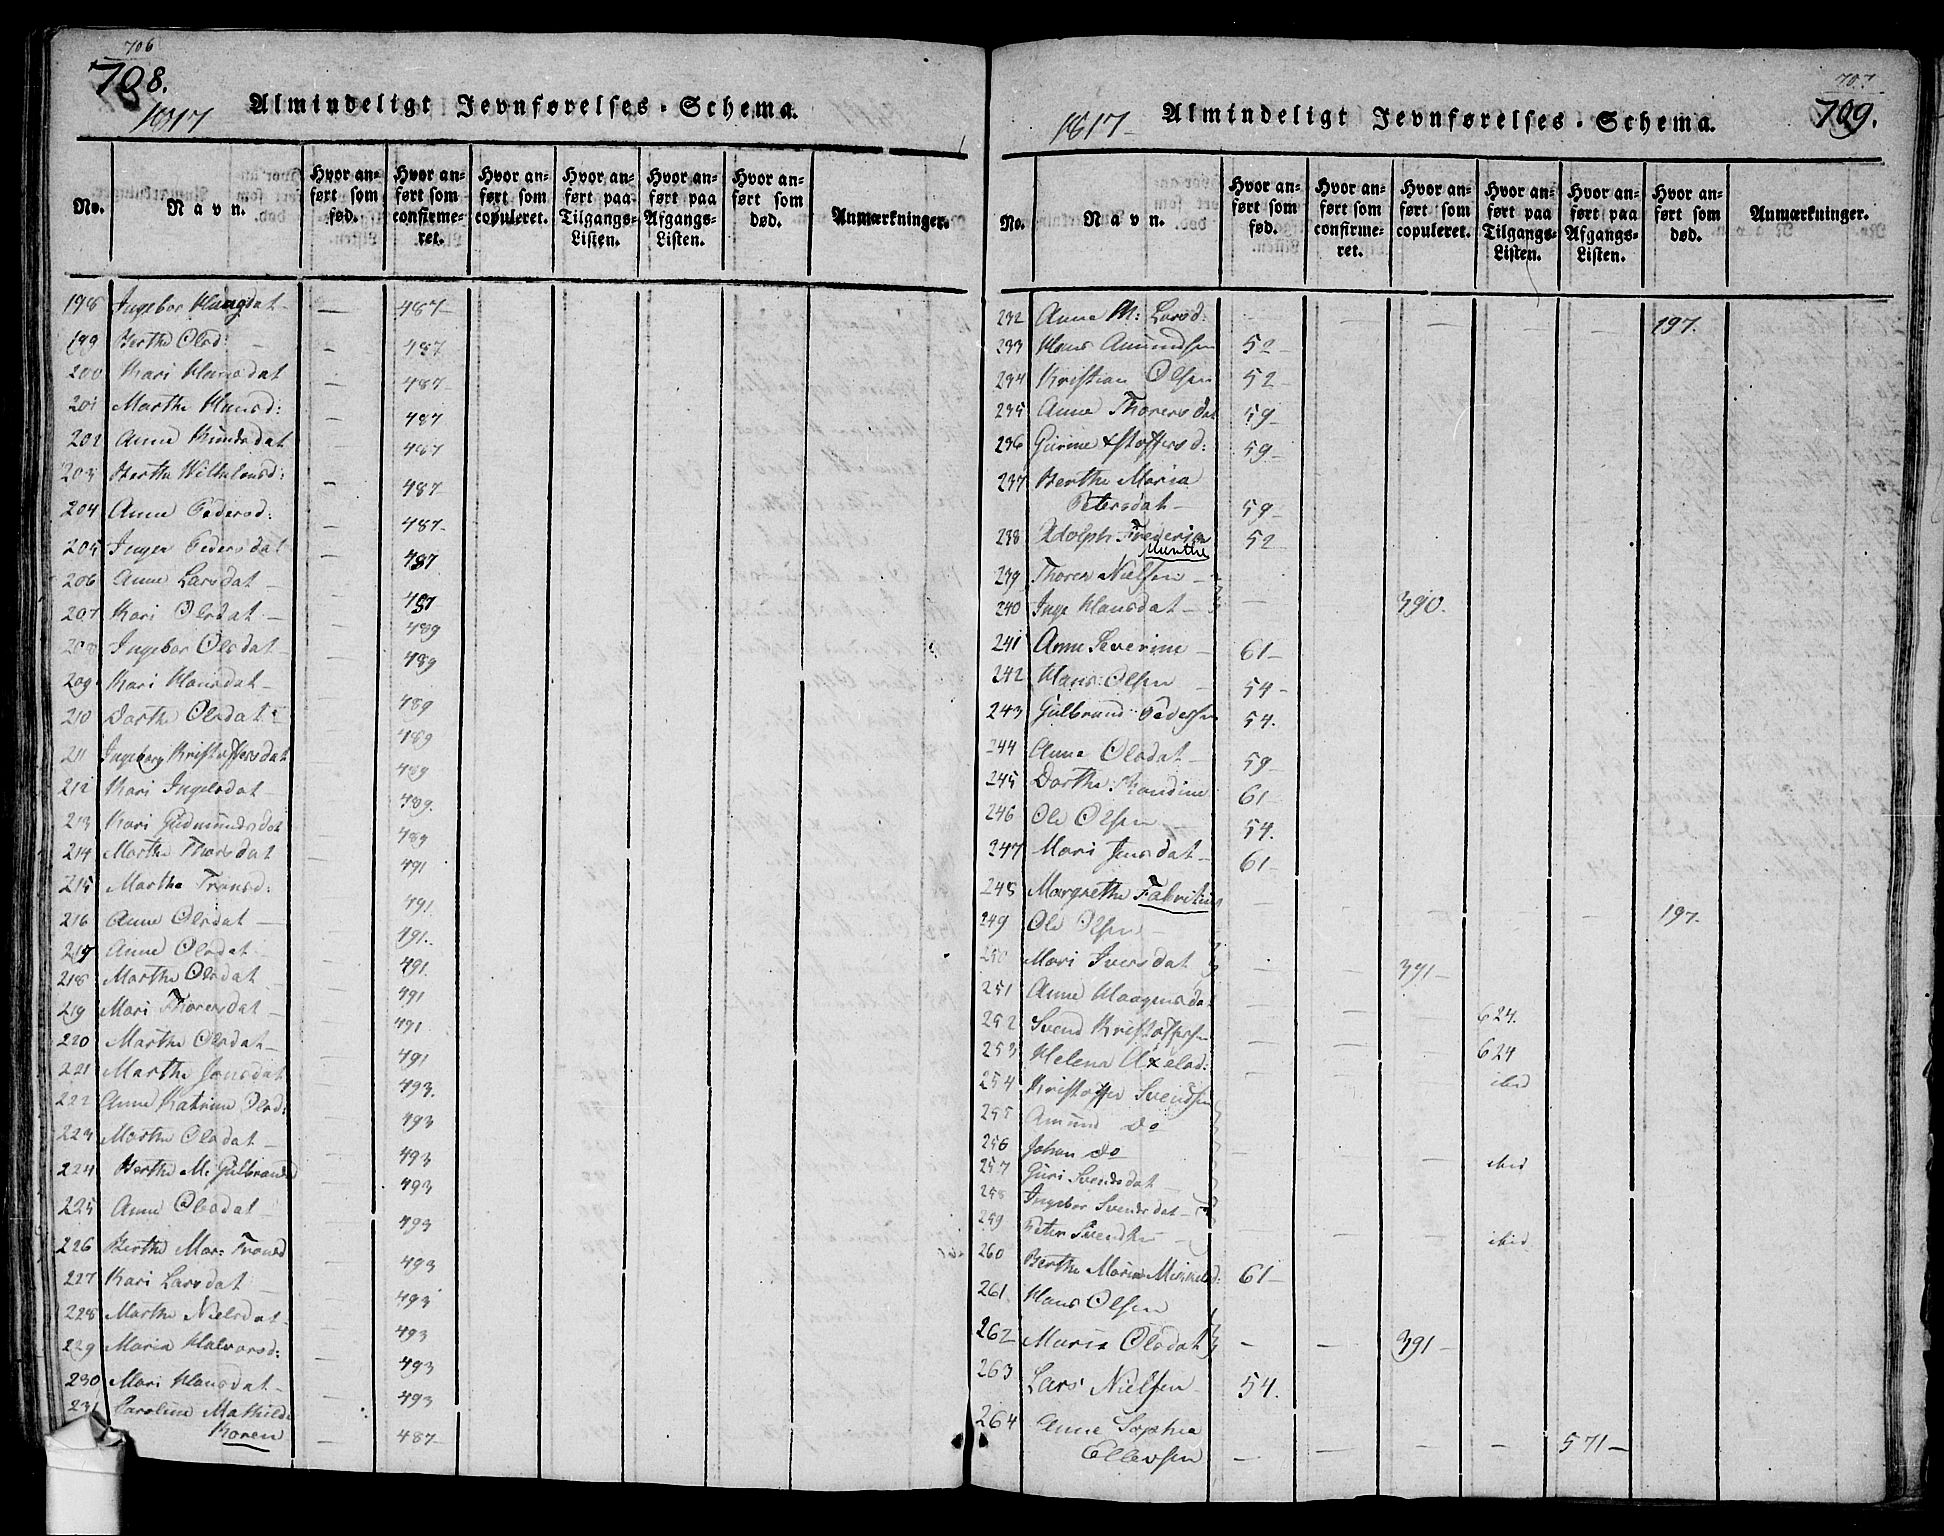 706
708.
1817
Almindeligt Jevnførelses-Schema.
No. Navn. Hvor anført som fød. Hvor anført som confirmeret. Hvor anført som copuleret. Hvor anført paa Tilgangs-Listen. Hvor anført paa Afgangs-Listen. Hvor anført som død. Anmærkninger.
198 Ingebor Haagsdat — — 487—
199 Berthe Olsd: — — 487
200 Kari Hansdat — 487—
201 Marthe Hansd: — 487
202 Anne Knudsdat — 487
203 Berthe Wilhelmsd: — 487—
204 Anne Pedersd: — 487—
205 Inger Pedersdat — 487
206 Anne Larsdat — — 487
207 Kari Olsdat — — 489
208 Ingebor Olsdat — — 489
209 Kari Hansdat — — 489
210 Dorthe Olsdat — — 489
211 Ingeborg Kristoffersdat — 489
212 Kari Ingelsdat — — 489.
213 Kari Gudmundsdat — 489
214 Marthe Thorsdat — 491
215 Marthe Tronsd: — 491
216 Anne Olsdat — — 491.
217 Anne Olsdat — — 491
218 Marthe Olsdat — — 491
219 Mari Thorersdat — — 491
220 Marthe Olsdat — — 491
221 Marthe Jensdat — 493.
222 Anne Katrine Olsd: — 493
223 Marthe Olsdat — — 493
224 Berthe M: Gulbrandsd — 493
225 Anne Olsdat — — 493
226 Berthe Mar: Tronsd — 493
227 Kari Larsdat — — 493
228 Marthe Nielsdat — — 493
229 Maria Halvorsd: — 493
230 Mari Hansdat — — 493
231 Caroline Mathilde
Koren — 487—
707
709.
1817—
Almindeligt Jevnførelses-Schema.
No. Navn. Hvor anført som fød. Hvor anført som confirmeret. Hvor anført som copuleret. Hvor anført paa Tilgangs-Listen. Hvor anført paa Afgangs-Listen. Hvor anført som død. Anmærkninger.
232 Anne M: Larsd: — — — — — 197.
233 Hans Amundsen 52—
234 Kristian Olsen 52—
235 Anne Thorersdat 59—
236 Gurine Xstoffersd: 59—
237 Berthe Maria
Petersdat — 59—
238 Adolph Frederich
Munthe 52—
239 Thorer Nielsen —
240 Inge Hansdat — — — 390.
241 Anne Severine — 61—
242 Hans Olsen — 54—
243 Gulbrand Pedersen 54.
244 Anne Olsdat — 59—
245 Dorthe Randine 61—
246 Ole Olsen — 54.
247 Mari Jensdat — 61—
248 Margrethe Fabritius — — — — — 197.
249 Ole Olsen —
250 Mari Iversdat — — 391—
251 Anne Haagensdat — — — 624.
252 Svend Kristoffersen — — — 624
253 Helena Axelsd: — — — ibid
254 Kristoffer Svendsen
255 Amund Do
256 Johan do — — — ibid
257 Guri Svendsdat —
258 Ingebor Svendsdat —
259 Peter Svendsen — — — — ibid
260 Berthe Maria Mikkelsd: 61—
261 Hans Olsen
262 Maria Olsdat — — 391—
263 Lars Nielsen — 54.
264 Anne Sophia
Ellevsen — — — — 571—